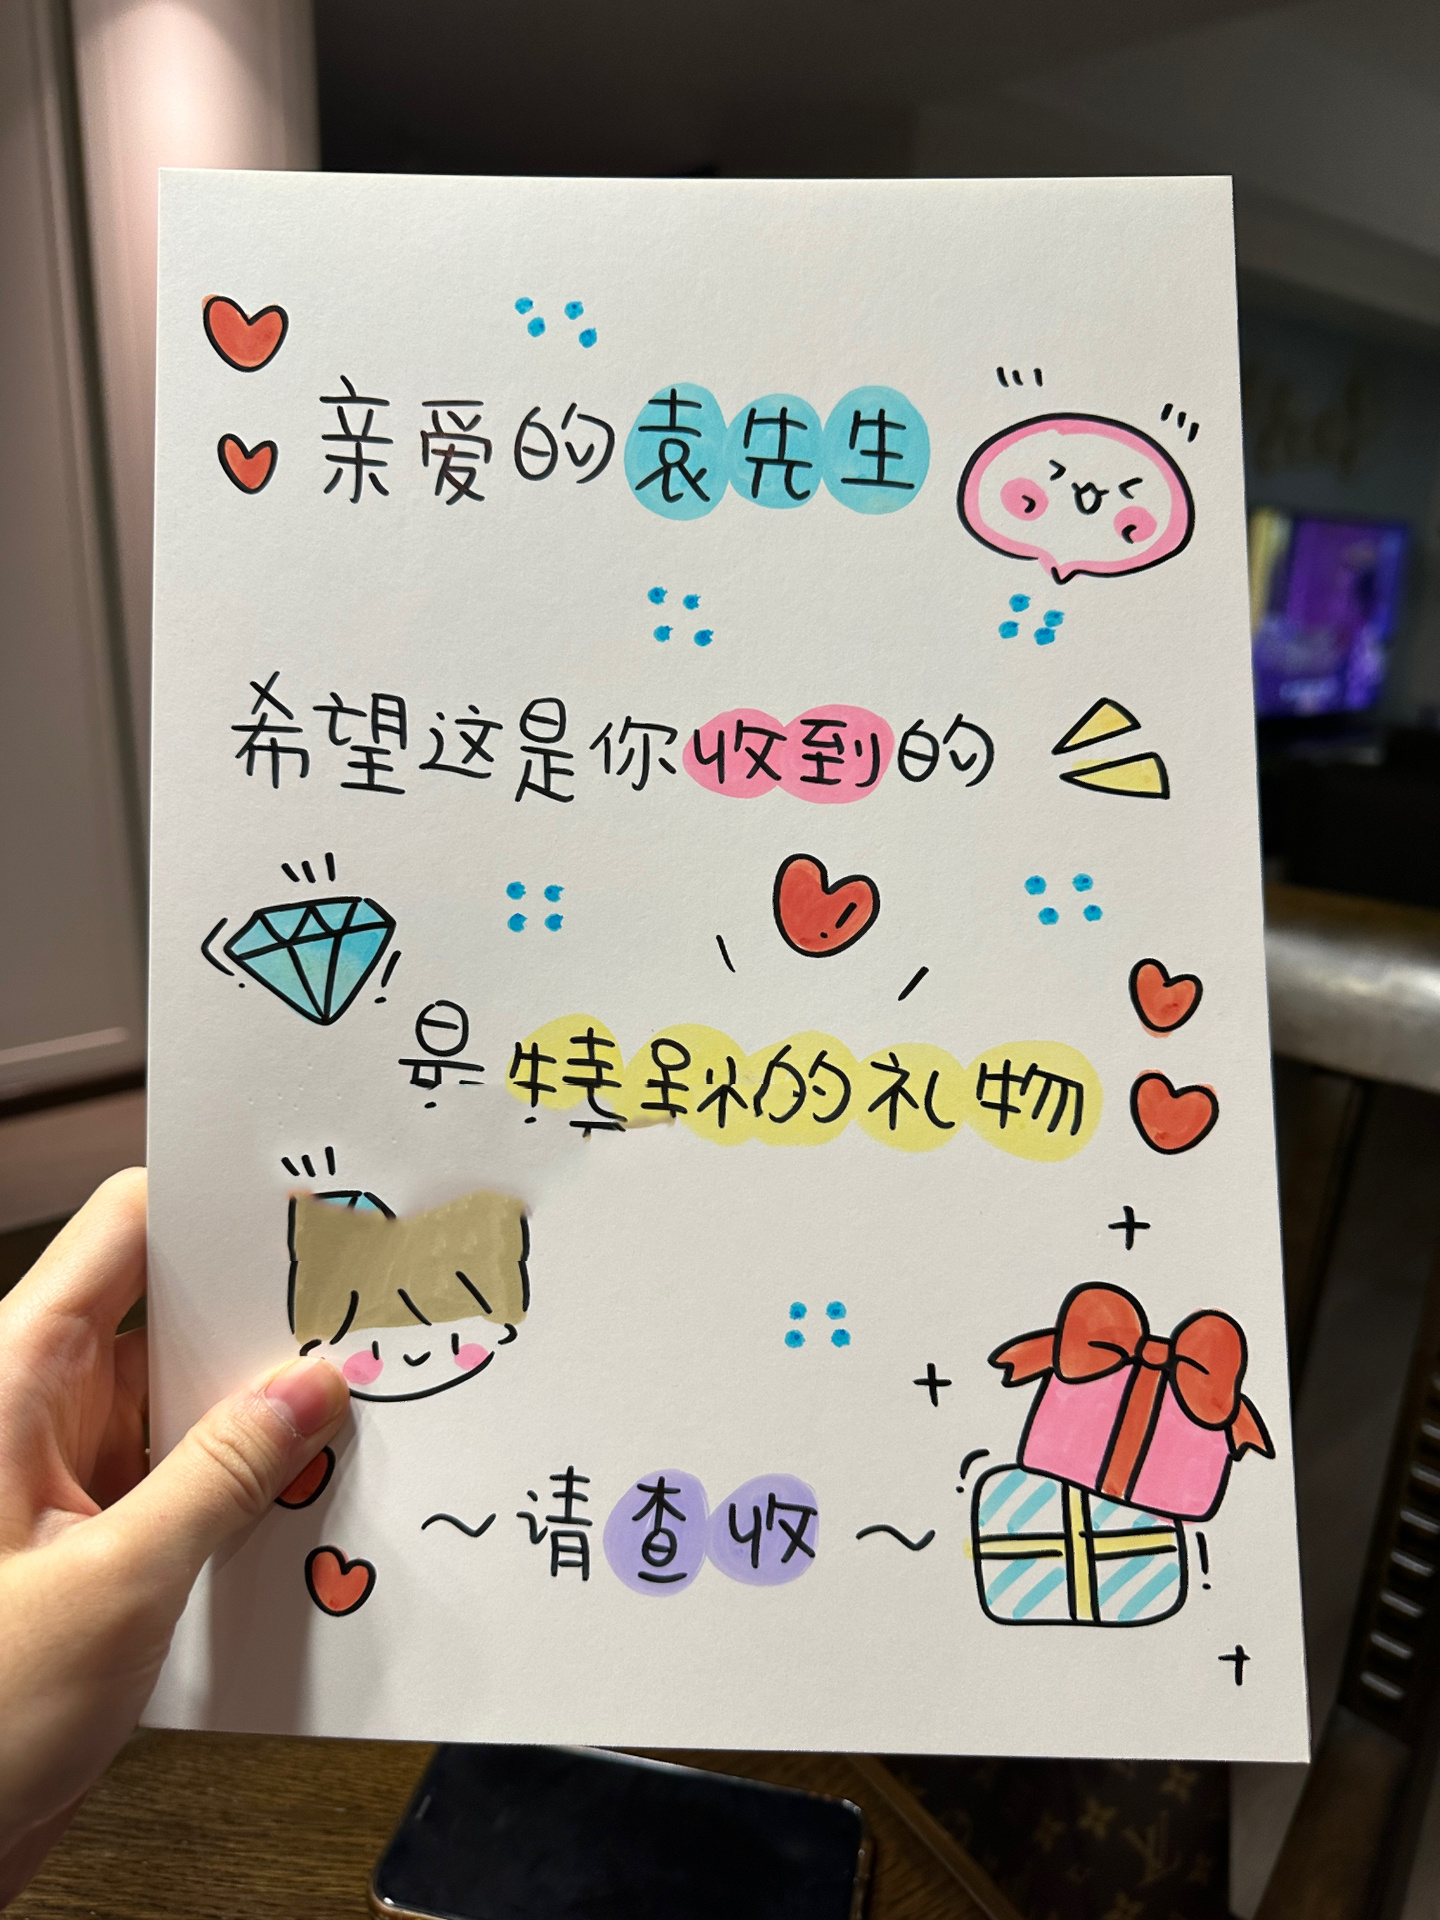 亲爱的袁先生
希望这是你收到的
的礼物
~请查收~